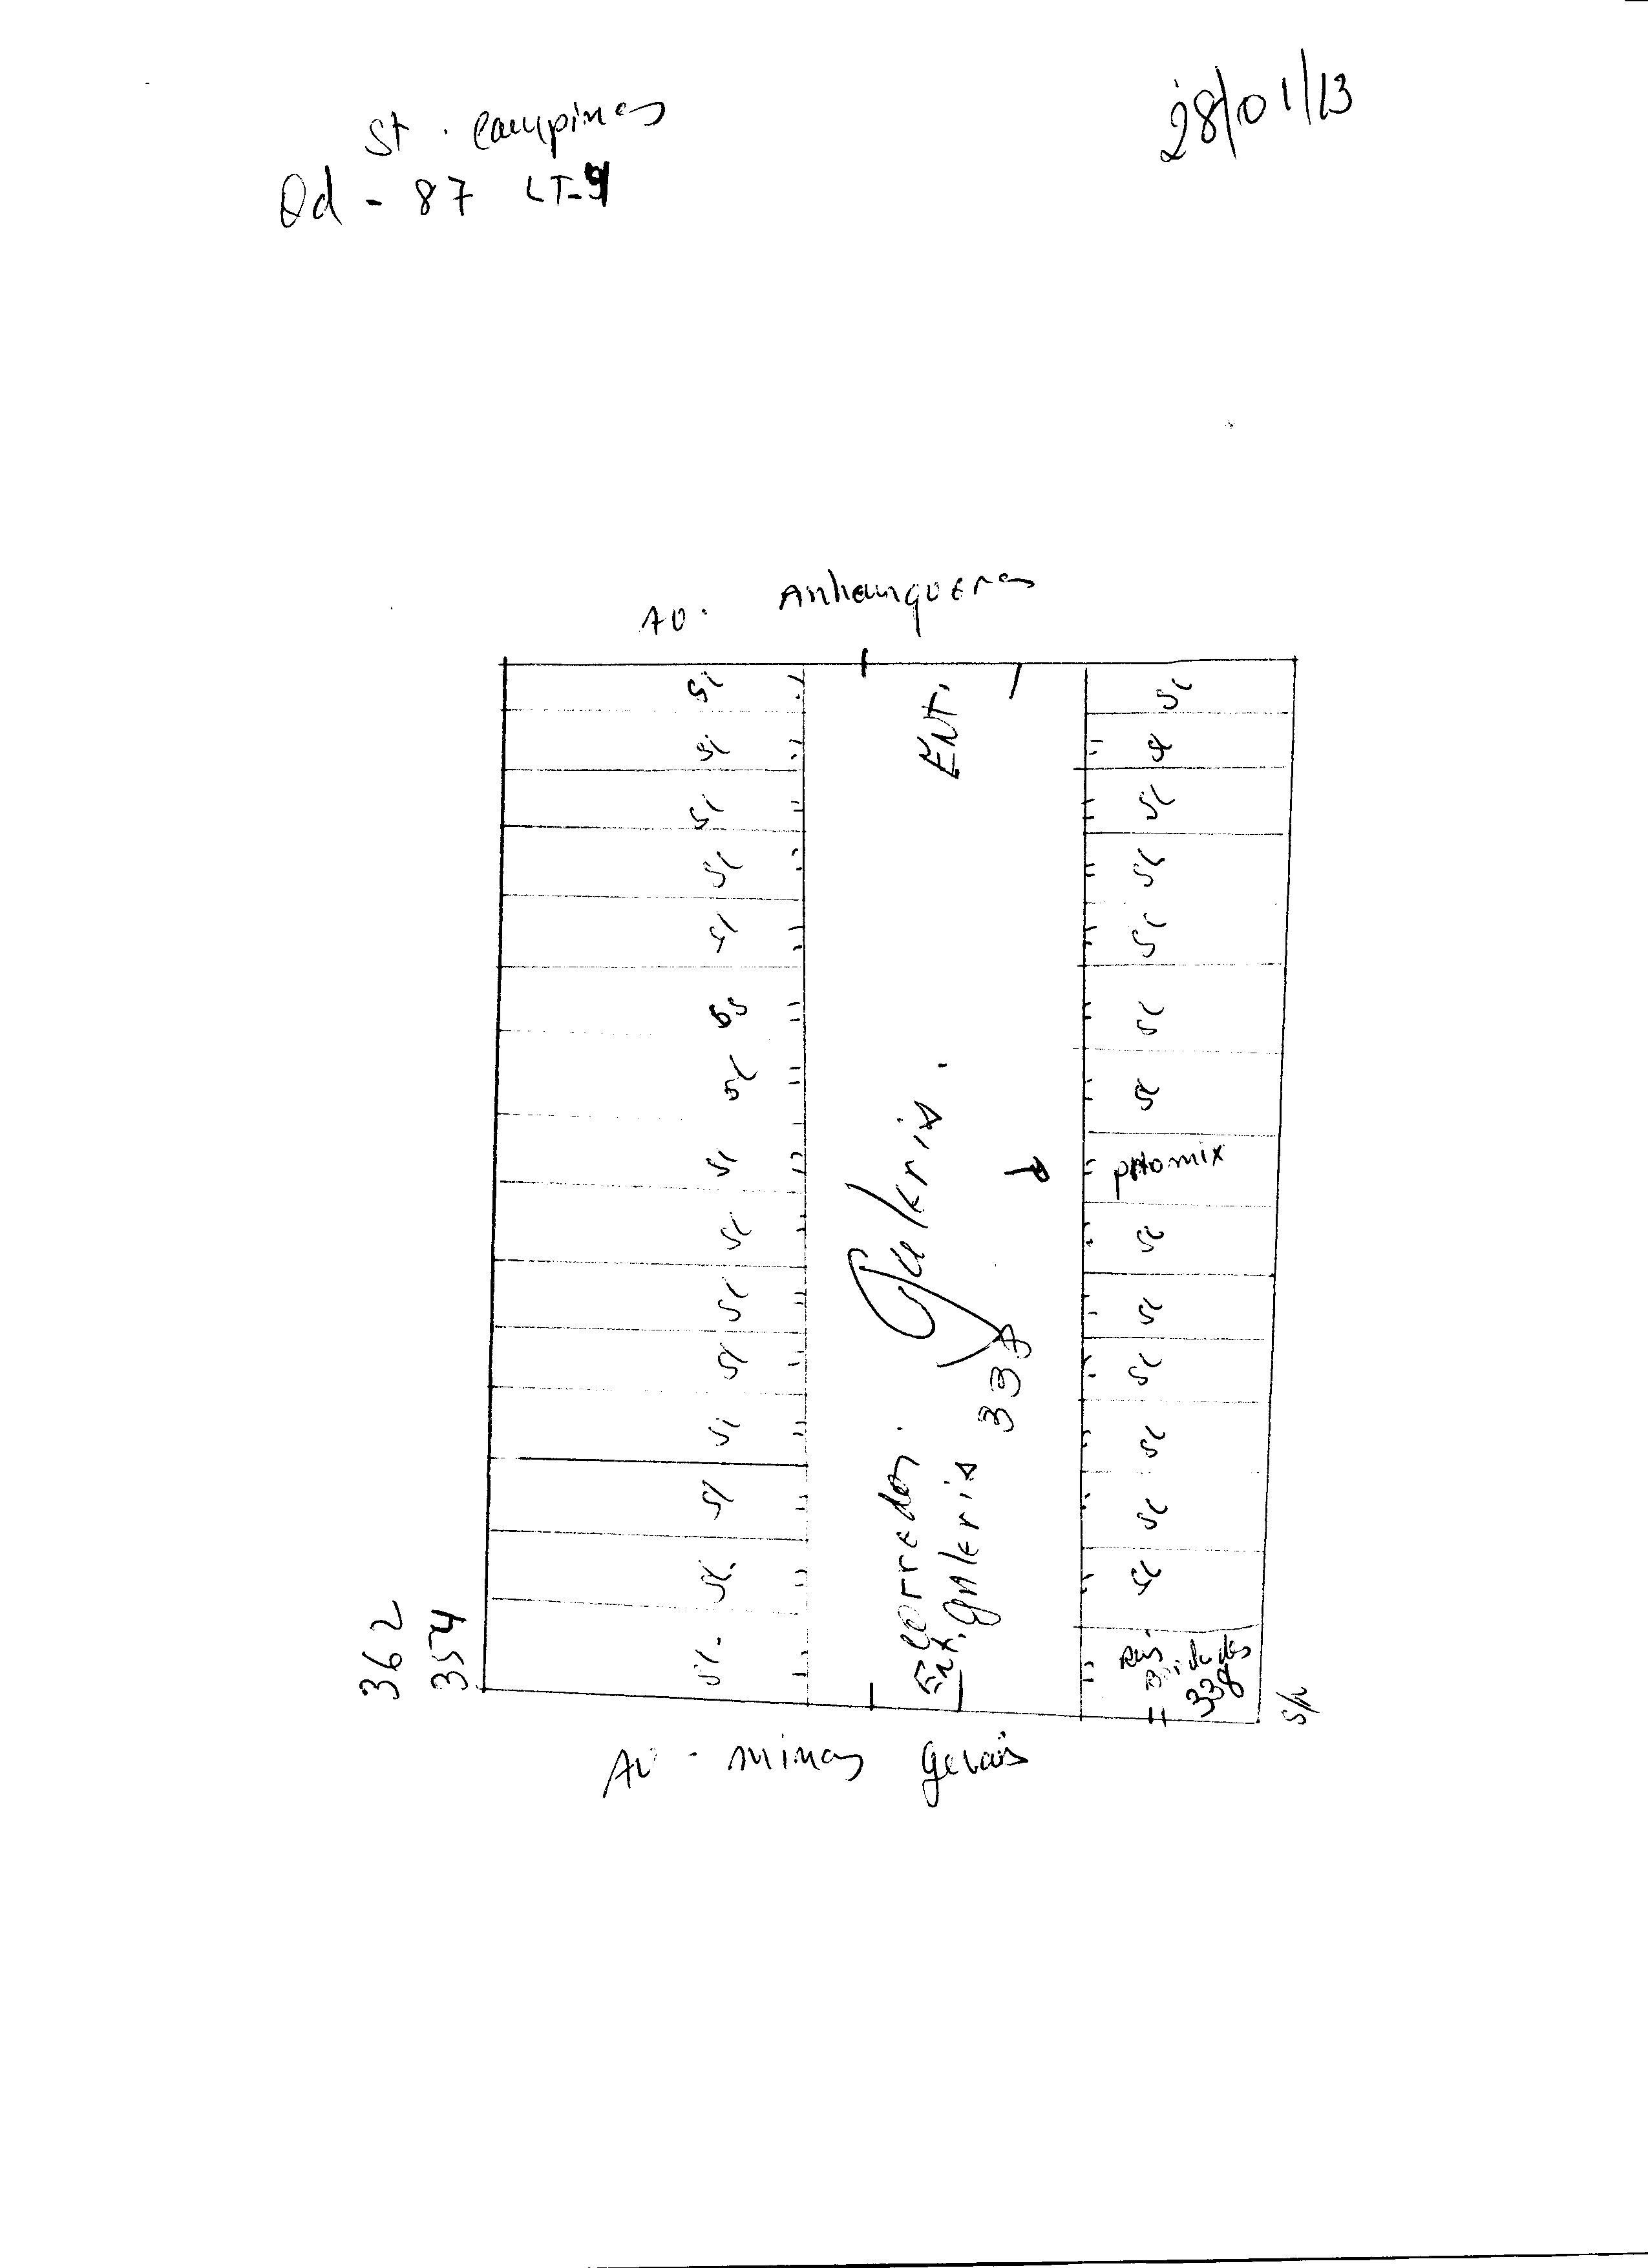 28/01/13
St. Campinas
Qd - 87 LT-9
AV. Anhanguera
SL SL
SL SL
SL SL
SL SL
SL SL
SL SL
SL SL
SL photomix
SL SL
SL SL
SL SL
SL SL
SL SL
SL. SL
SL.
ENT.
Galeria.
corredor.
Ent. galeria 338
338
362
354
S/N
AV - minas gerais